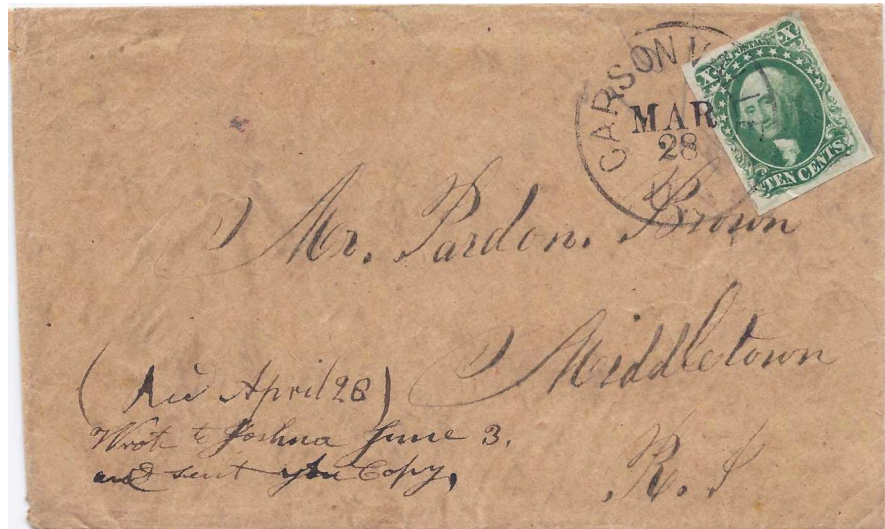 CARSON V
X POSTAGE X
MAR
28
TEN CENTS
Mr. Pardon. Brown
Middletown
R. I
(Recd April 28)
Wrote to Joshua June 3.
and sent you Copy,